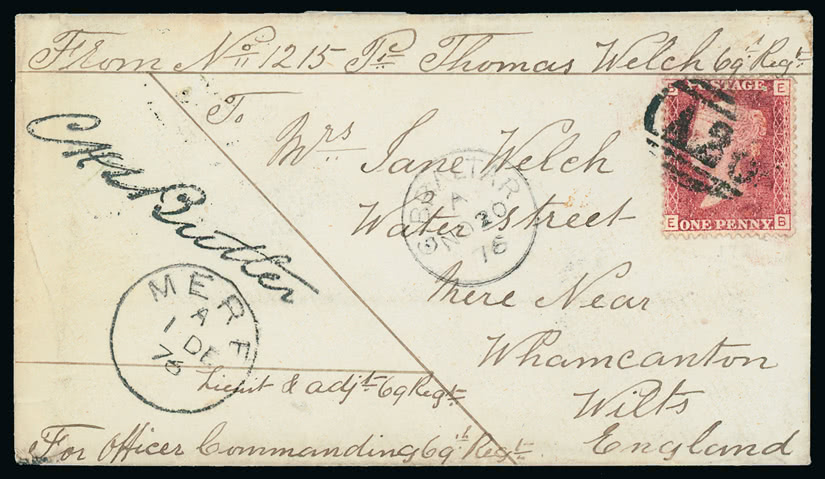 From No 1215 Pte Thomas Welch 69th Regt
To
Mrs Jane Welch
Water Street
Mere Near
Whamcanton
Wilts
England
Butler
Lieut & adjt 69 Regt
For Officer Commanding 69th Regt
GIBRALTAR
A
NO 20
76
MERE
A
1 DE
76
A26
POSTAGE
B E
E B
ONE PENNY